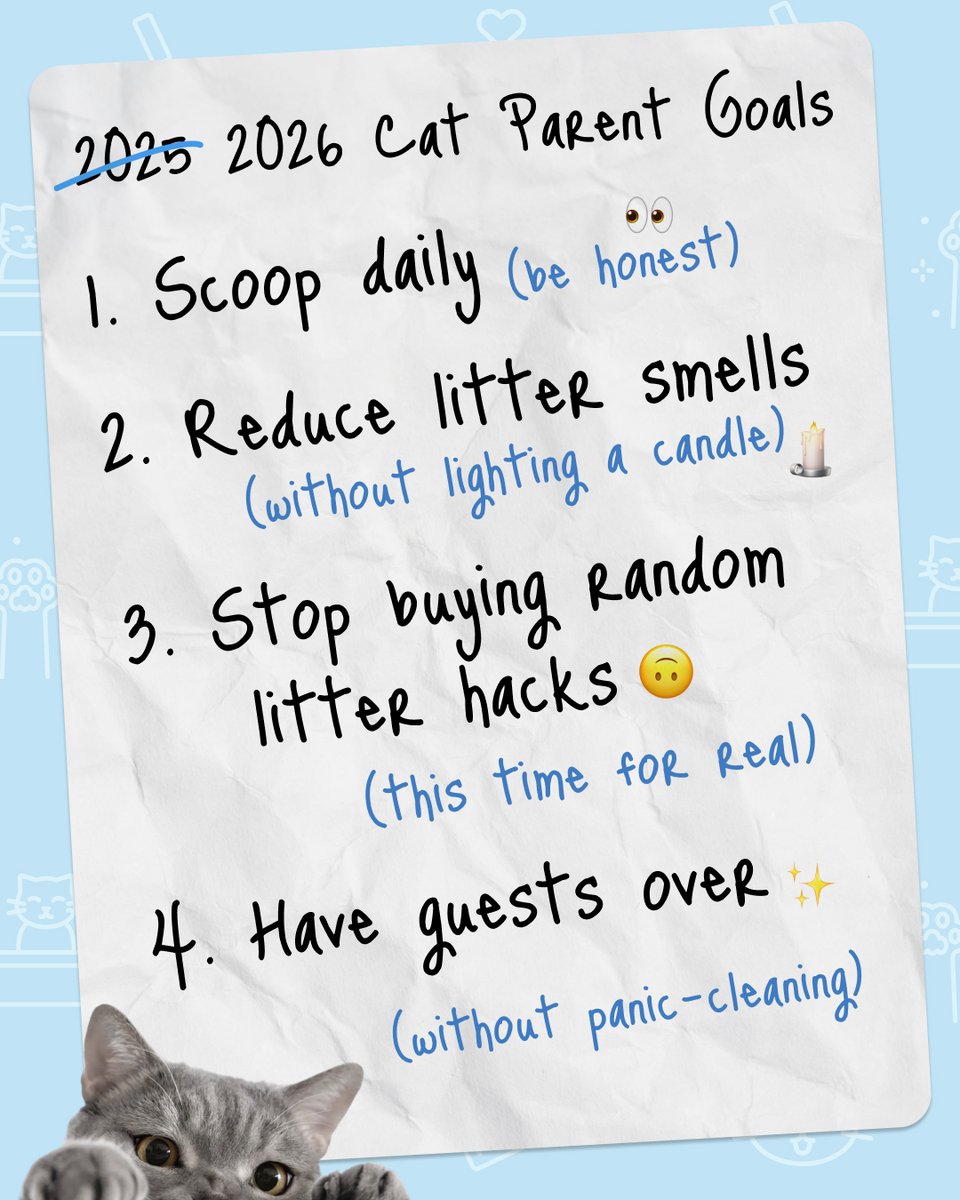 2025 2026 Cat Parent Goals
1. Scoop daily (be honest) 👀
2. Reduce litter smells
(without lighting a candle) 🕯️
3. Stop buying random
litter hacks 🙃
(this time for real)
4. Have guests over ✨
(without panic-cleaning)